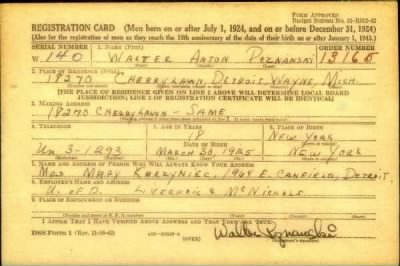 FORM APPROVED
REGISTRATION CARD (Men born on or after July 1, 1924, and on or before December 31, 1924)
(Also for the registration of men as they reach the 18th anniversary of the date of their birth on or after January 1, 1943.)
SERIAL NUMBER 1. NAME (Print) ORDER NUMBER
W 140 WALTER ANTON POZNANSKI 13165
(First) (Middle) (Last)
2. PLACE OF RESIDENCE (Print)
18270 CHERRYLAWN, DETROIT, WAYNE, MICH.
[THE PLACE OF RESIDENCE GIVEN ON LINE 2 ABOVE WILL DETERMINE LOCAL BOARD
JURISDICTION; LINE 2 OF REGISTRATION CERTIFICATE WILL BE IDENTICAL]
3. MAILING ADDRESS
18270 CHERRYLAWN - SAME
4. TELEPHONE 5. AGE IN YEARS 6. PLACE OF BIRTH
18 NEW YORK
DATE OF BIRTH
Un 3-1293 MARCH 30, 1925 NEW YORK
7. NAME AND ADDRESS OF PERSON WHO WILL ALWAYS KNOW YOUR ADDRESS
MRS MARY 1964 E. CANFIELD, DETROIT
8. EMPLOYER'S NAME AND ADDRESS
U. of D. LIVERNOIS & MCNICHOLS
9. PLACE OF EMPLOYMENT OR BUSINESS
I AFFIRM THAT I HAVE VERIFIED ABOVE ANSWERS AND THAT THEY ARE TRUE.
DSS Form 1 (OVER)
Walter Poznanski
(Registrant's signature)